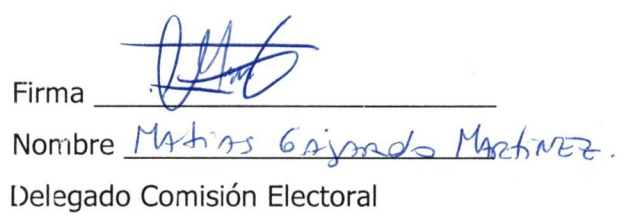 Firma
Nombre Matias Gajardo Martinez.
Delegado Comisión Electoral